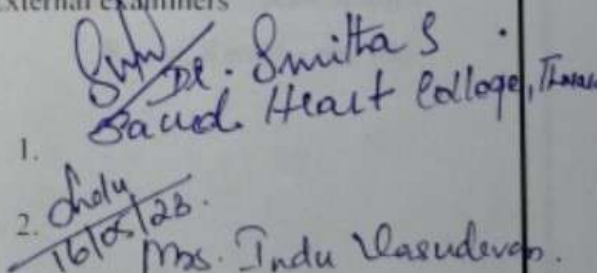 External examiners
Dr. Smitha S
Sacred Heart College,
1.
2. Indu
16/05/23.
Mrs. Indu Vasudevan.